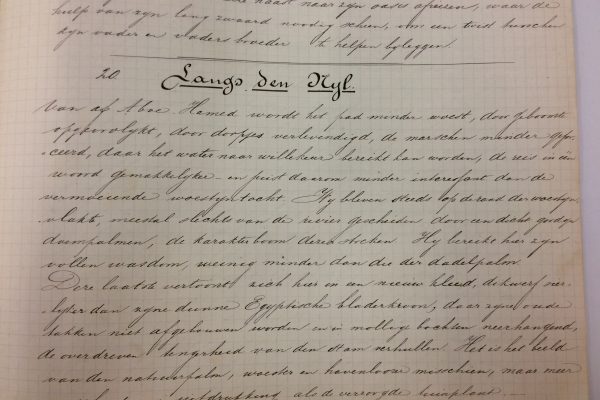 hulp van zyn lang zwaard noodig scheen, om een twist tusschen
zyn vader en vaders broeder te helpen byleggen.
20. Langs den Nyl.
Van af Aboe Hamed wordt het pad minder woest, door geboomte
opgevrolykt, door dorpjes verlevendigd, de marschen minder gefor-
ceerd, daar het water naar willekeur bereikt kan worden, de reis in één
woord gemakkelyker en juist daarom minder interessant dan de
vermoeiende woestyntocht. Wy bleven steeds op de rand der woestyn-
vlakte, meestal slechts van de rivier gescheiden door een dicht
doempalmen, de karakterboom deren streken. Hy bereikt hier zyn
vollen wasdom, weinig minder dan die der dadelpalm.
Deze laatste vertoont zich hier in een nieuw kleed, dichter
dan zyne dunne Egyptische bladerkroon, daar zyne oude
takken niet afgehouwen worden en in mollige bochten neerhangend,
de overdreven lengte van den stam verhullen. Het is het beeld
van den natuurpalm, woester en havenloozer misschien, maar meer
als de verzorgde tuinplant.